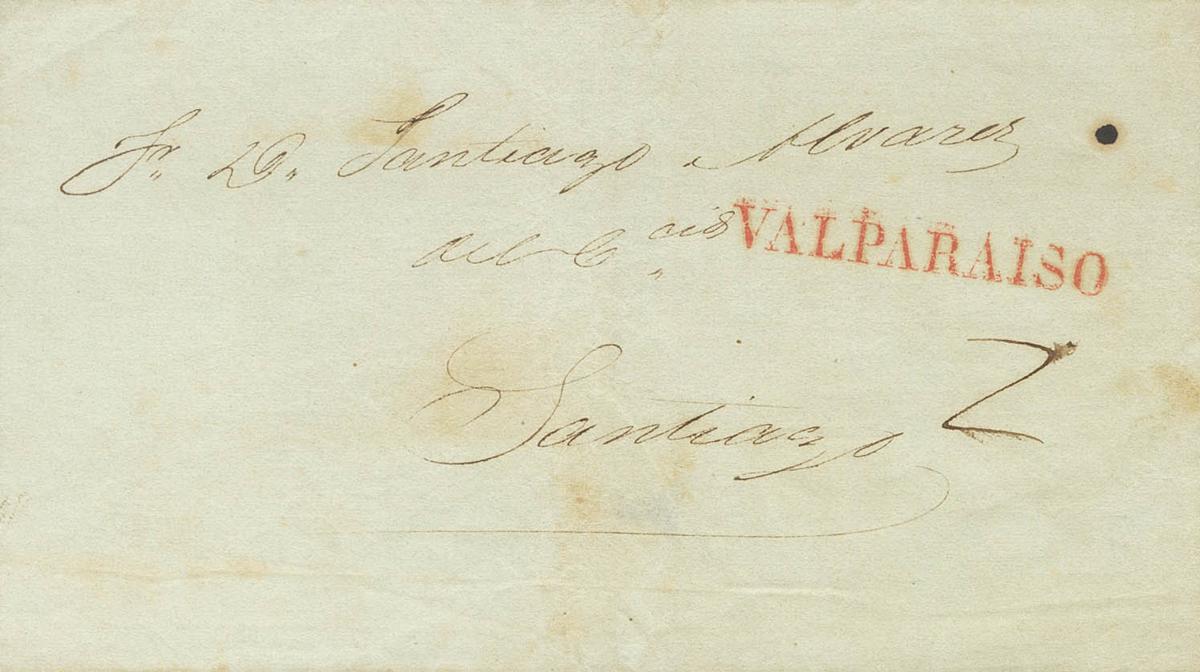 Sr. D. Santiago Alvarez
del C.cio
VALPARAISO
2
Santiago